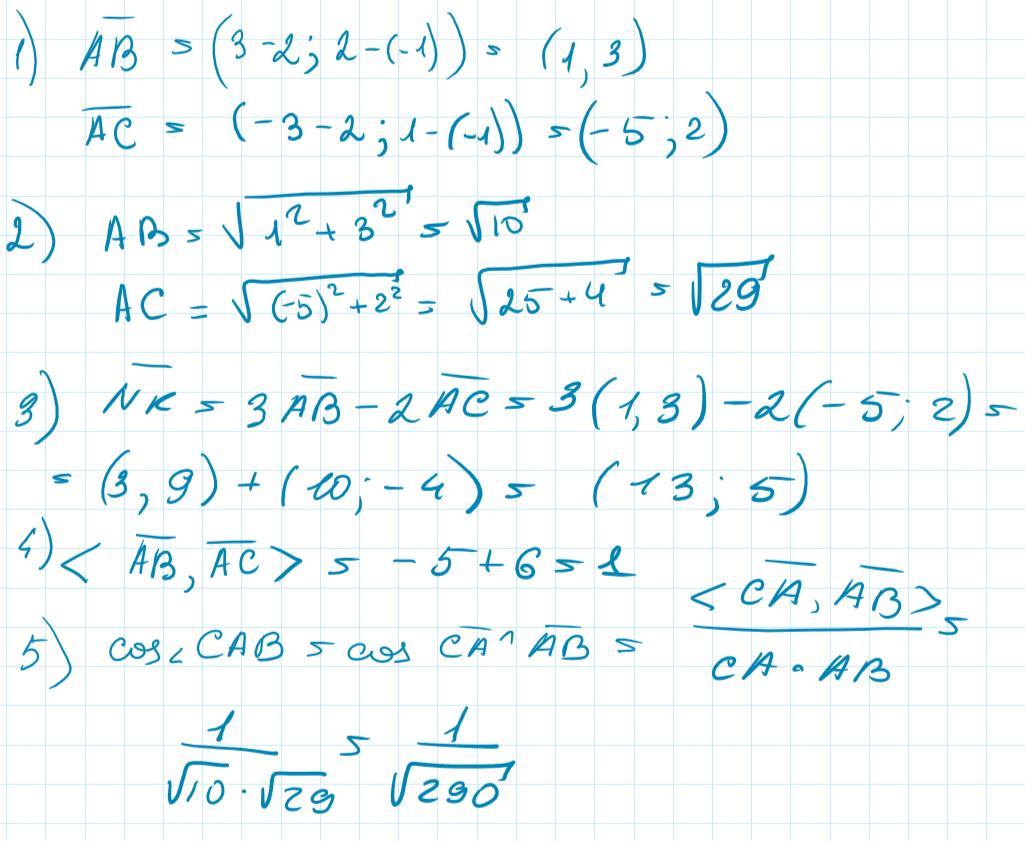 1) AB = (3-2; 2-(-1)) = (1, 3)
AC = (-3-2; 1-(-1)) = (-5; 2)
2) AB = √(1² + 3²) = √10
AC = √((-5)² + 2²) = √(25+4) = √29
3) NK = 3 AB - 2 AC = 3 (1, 3) - 2 (-5; 2) =
= (3, 9) + (10; -4) = (13; 5)
4) < AB, AC > = -5 + 6 = 1
5) cos < CAB = cos CA ^ AB = < CA, AB > / CA · AB =
1 / √10 · √29 = 1 / √290